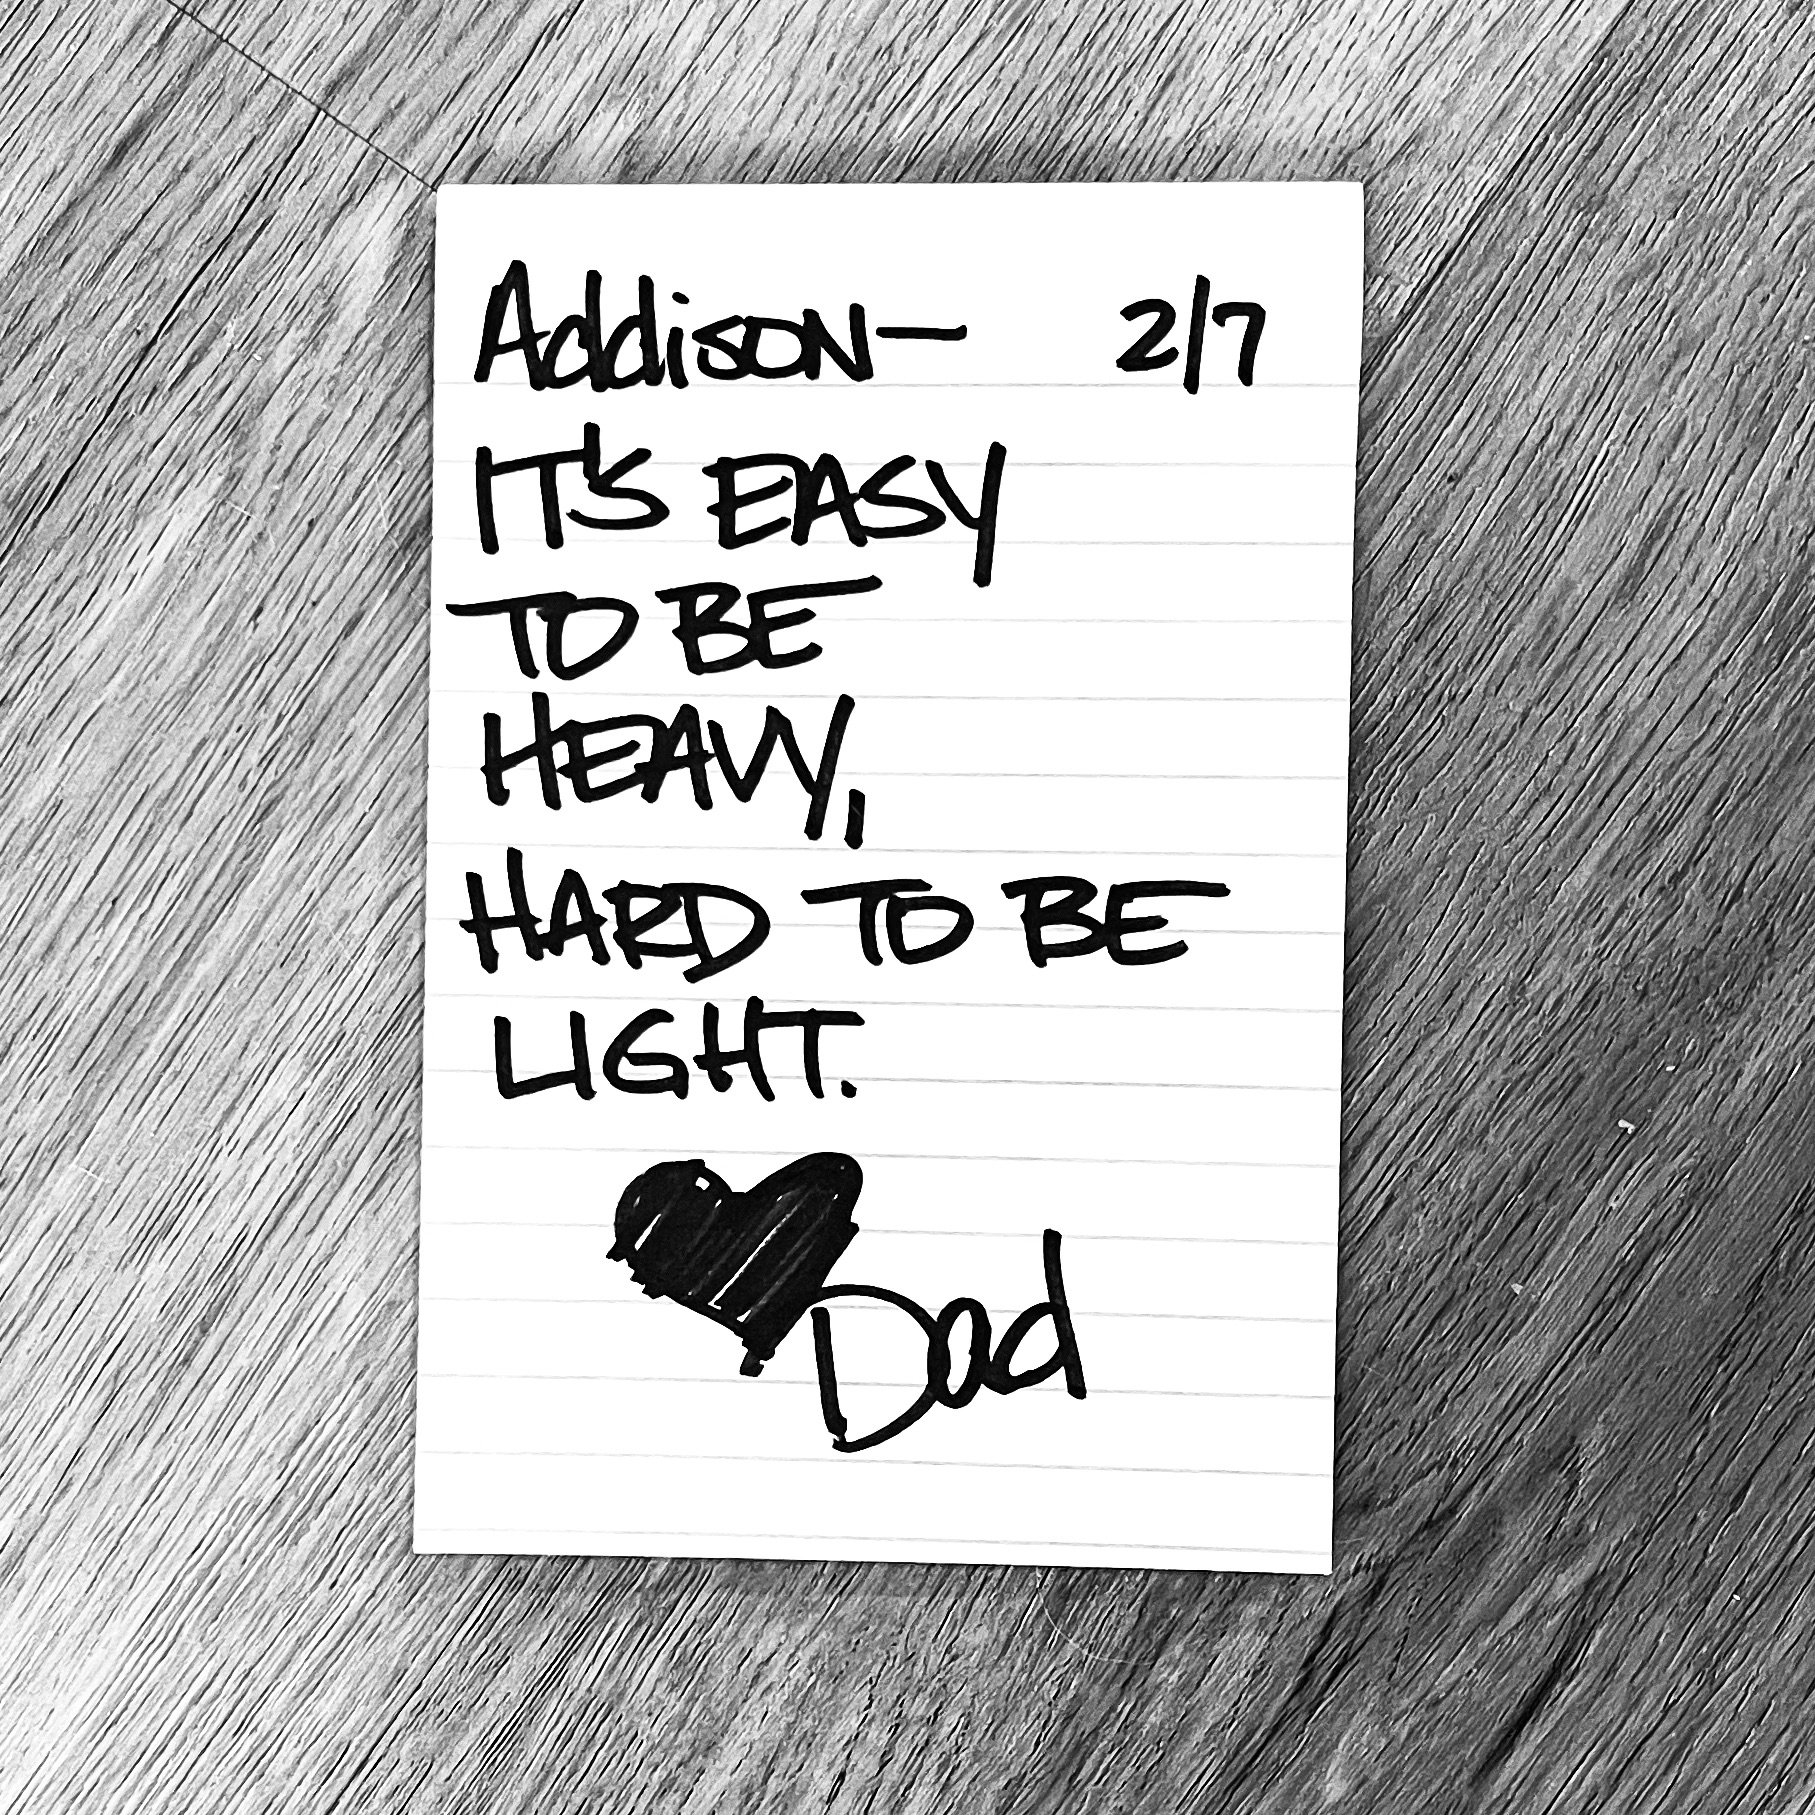 Addison— 2/7
IT'S EASY
TO BE
HEAVY,
HARD TO BE
LIGHT.
Dad